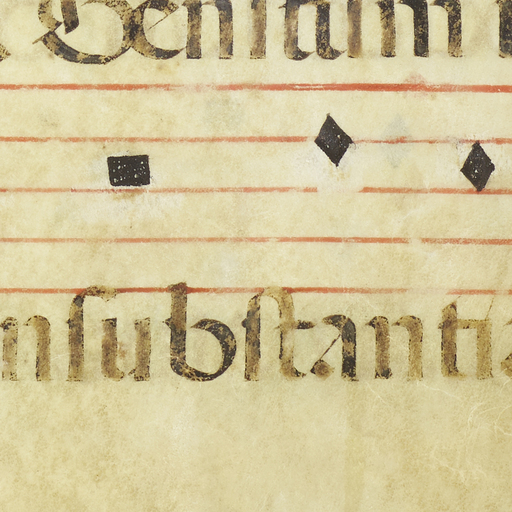 Genitum
nſubſtanti